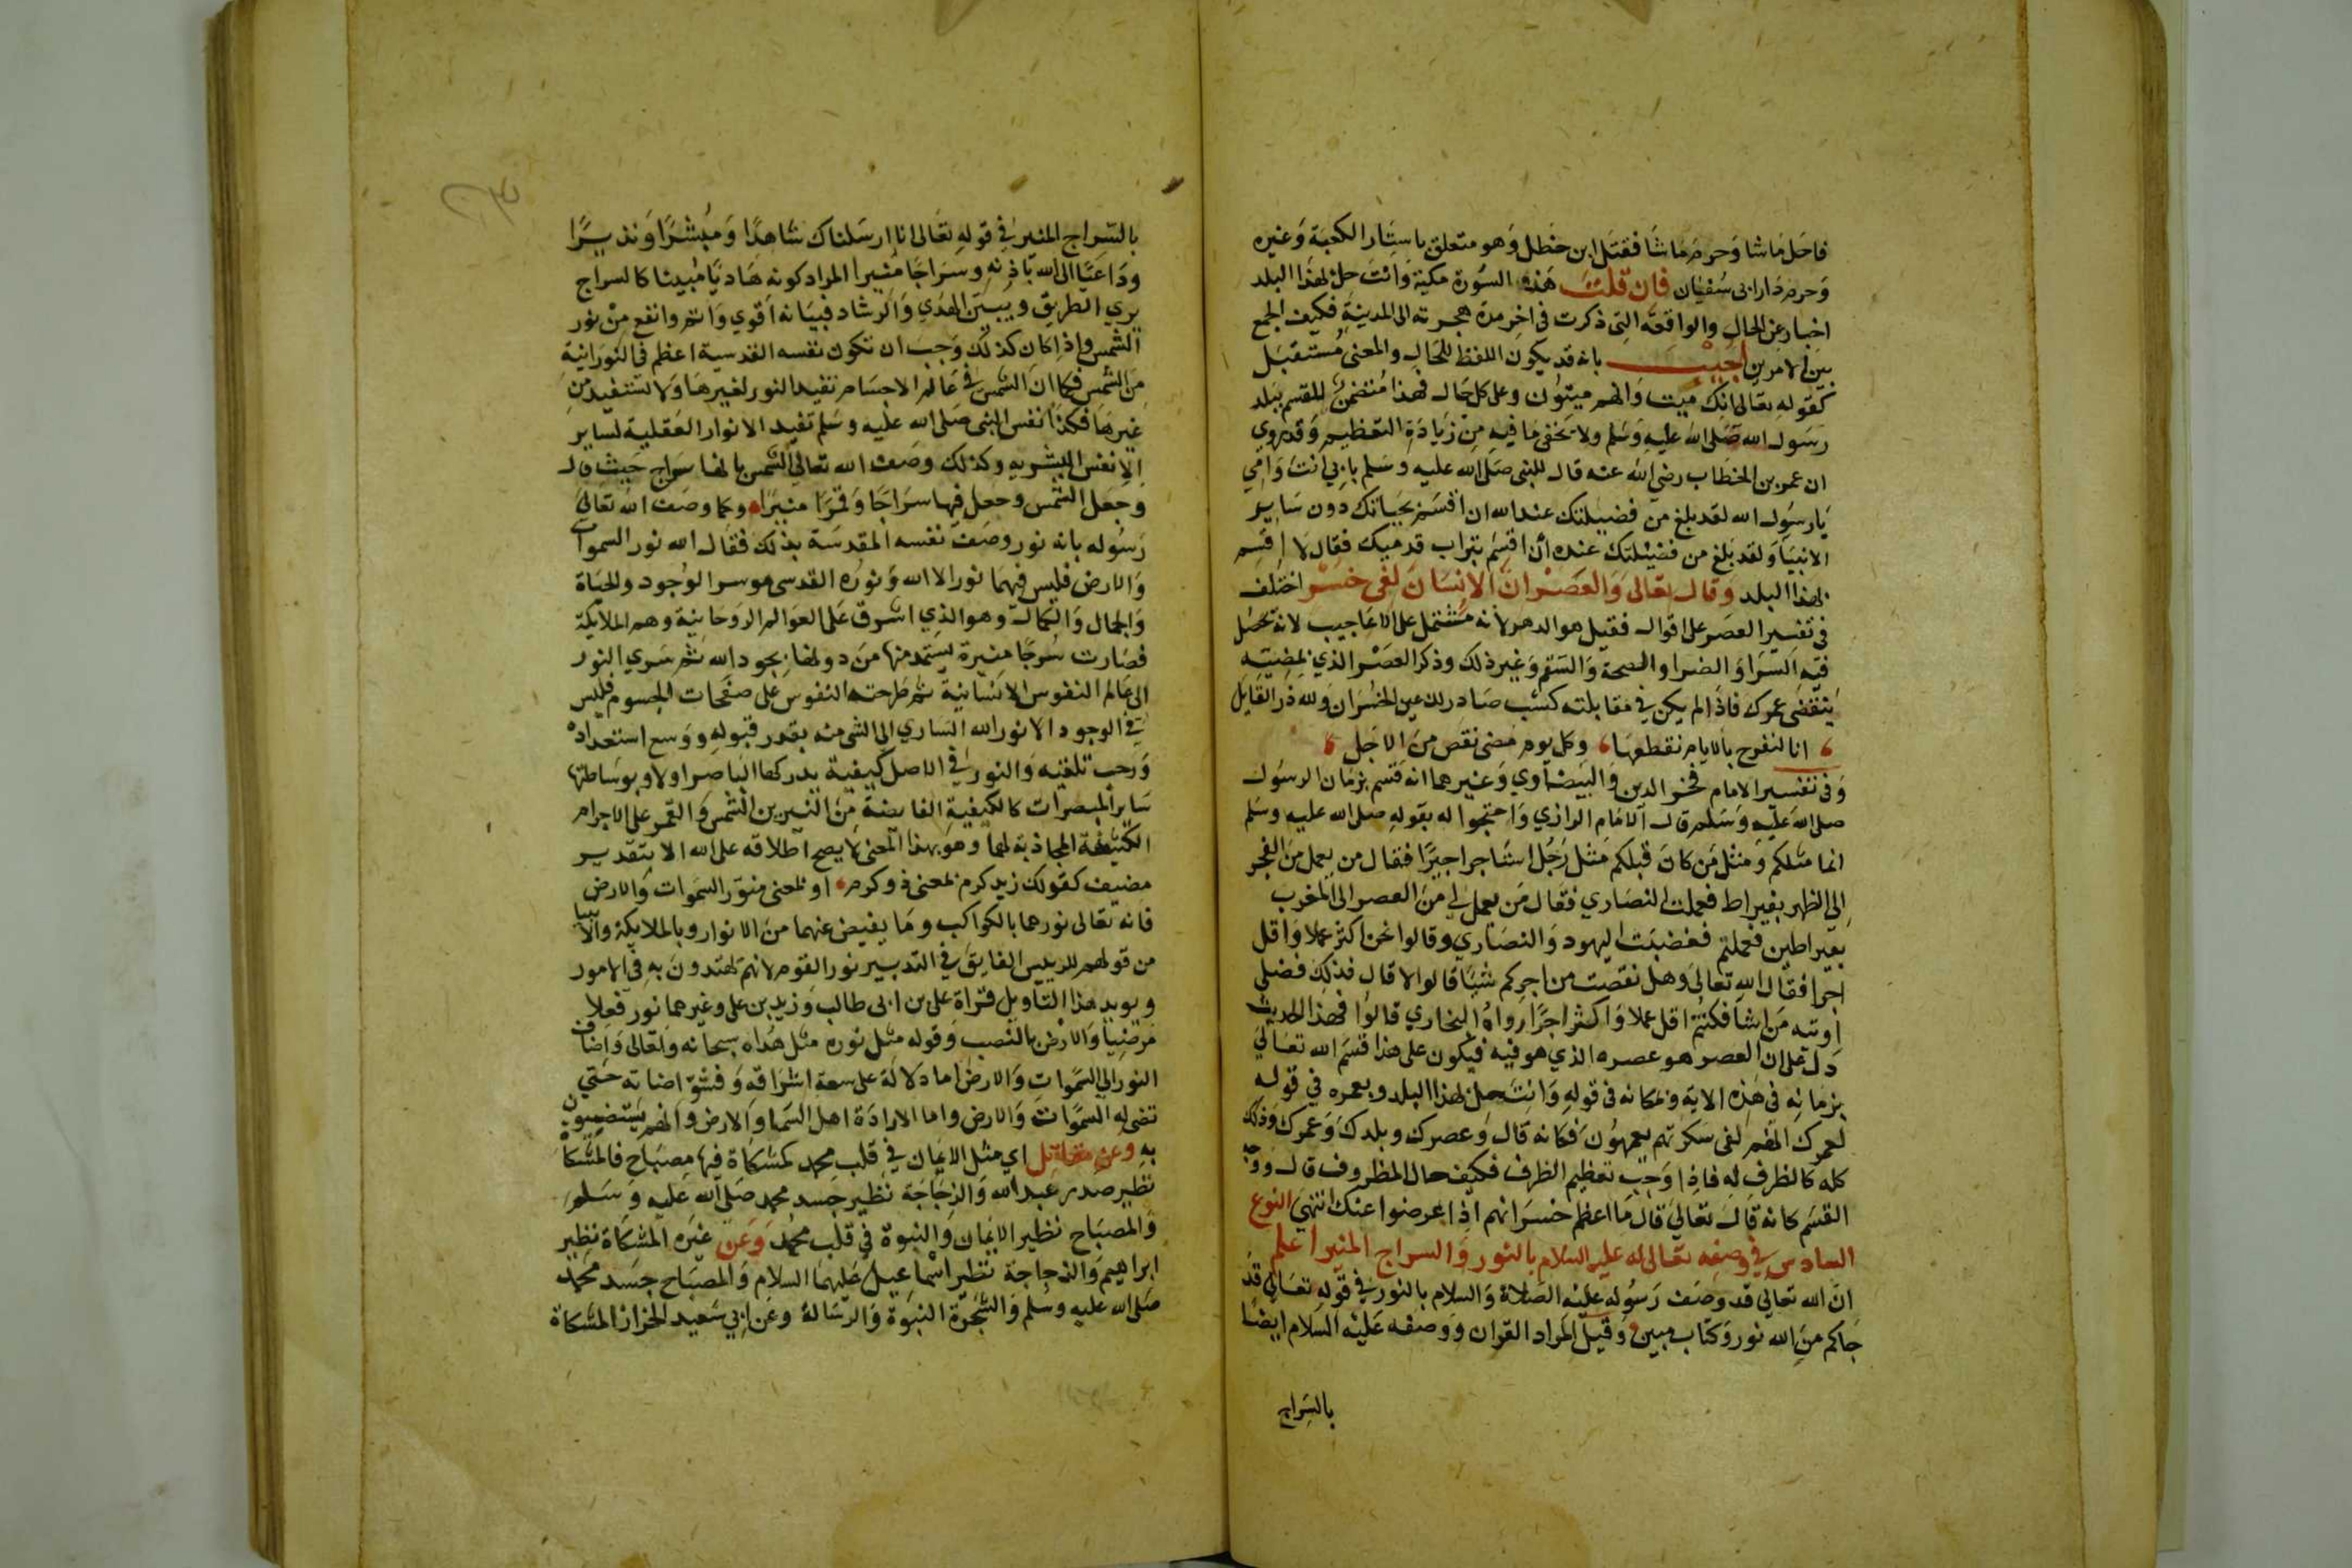 فاحل ما شا وحرم ما شا فقتل ابن خطل وهو متعلق باستار الكعبة وغيره
وحرم دار ابى سفيان فان قلت هذه السورة مكية وانت حل بهذا البلد
اخبار عن الحال والواقعة التى ذكرت في اخر مدة هجرته الى المدينة فكيف الجمع
بين الامرين اجيب بانه قد يكون اللفظ للحال والمعنى مستقبل
كقوله تعالى انك ميت وانهم ميتون وعلى كل حال فهذا متضمن للقسم ببلد
رسول الله صلى الله عليه وسلم ولا يخفى ما فيه من زيادة التعظيم وقد روي
ان عمر بن الخطاب رضي الله عنه قال للنبى صلى الله عليه وسلم بابي انت وامي
يارسول الله لقد بلغ من فضيلتك عند الله ان اقسم بحياتك دون ساير
الانبيا ولقد بلغ من فضيلتك عنده أن اقسم بتراب قدميك فقال لا اقسم
بهذا البلد وقال تعالى والعصر ان الانسان لفى خسر اختلف
في تفسير العصر على اقوال فقيل هو الدهر لانه مشتمل على الاعاجيب لانه تحصل
فيه السرا والضرا والصحة والسقم وغير ذلك وذكر العصر الذي بمضيه
ينقضى عمرك فاذا لم يكن في مقابلته كسب صار ذلك عين الخسران ولله در القايل
انا لنفرح بالايام نقطعها وكل يوم مضى نقص من الاجل
وفى تفسير الامام فخر الدين والبيضاوي وغيرهما انه قسم بزمان الرسول
صلى الله عليه وسلم قال الامام الرازي واحتجوا له بقوله صلى الله عليه وسلم
انما مثلكم ومثل من كان قبلكم مثل رجل استاجر اجيرًا فقال من يعمل من الفجر
الى الظهر بقيراط فعملت النصاري فقال من يعمل لي من العصر الى المغرب
بقيراطين فعملتم فغضبت اليهود والنصاري وقالوا نحن اكثر عملا واقل
اجرا فقال الله تعالى وهل نقصت من اجركم شيًا قالوا لا قال فذلك فضلي
اوتيه من اشا فكنتم اقل عملا واكثر اجرًا رواه البخاري قالوا فهذا الحديث
دل على ان العصر هو عصره الذي هو فيه فيكون على هذا قسم الله تعالى
بزمانه في هذه الاية وبمكانه في قوله وانت حل بهذا البلد وبعمره في قوله
لعمرك انهم لفى سكرتهم يعمهون فكانه قال وعصرك وبلدك وعمرك وذلك
كله كالظرف له فاذا وجب تعظيم الظرف فكيف حال المظروف قال ووجه
القسم كانه قال تعالى قال ما اعظم خسرانهم اذا عرضوا عنك انتهى النوع
السادس في وصفه تعالى له عليه السلام بالنور والسراج المنير اعلم
ان الله تعالى قد وصف رسوله عليه الصلاة والسلام بالنور في قوله تعالى قد
جاكم من الله نور وكتاب مبين وقيل المراد القران ووصفه عليه السلام ايضًا
بالسراج
بالسراج المنير في قوله تعالى انا ارسلناك شاهدًا ومبشرًا ونذيرًا
وداعيًا الى الله باذنه وسراجًا منيرا المراد كونه هاديًا مبينا كالسراج
يري الطريق ويبين الهدي والرشاد فبيانه اقوي واتم وانفع من نور
الشمس واذا كان كذلك وجب ان تكون نفسه القدسية اعظم في النورانية
من الشمس فكما ان الشمس في عالم الاجسام تفيد النور لغيرها ولا تستفيد من
غيرها فكذا نفس النبى صلى الله عليه وسلم تفيد الانوار العقلية لساير
الانفس البشريه وكذلك وصف الله تعالى الشمس بانها سراج حيث قال
وجعل الشمس وجعل فيها سراجًا وقمرًا منيرًا وكما وصف الله تعالى
رسوله بانه نور وصف نفسه المقدسة بذلك فقال الله نور السموات
والارض فليس فيهما نور الا الله ونوره القدسى هو سر الوجود والحياة
والجمال والكمال وهو الذي اشرق على العوالم الروحانية وهم الملايكة
فصارت سرجًا منيرة يستمد منها من دونها بجود الله ثم سري النور
الى عالم النفوس الانسانية ثم طرحته النفوس على صفحات الجسوم فليس
في الوجود الا نور الله الساري الى الشى منه بقدر قبوله ووسع استعداده
ورحب تلقيه والنور في الاصل كيفية يدركها الباصر اولا وبوساطتها
ساير المبصرات كالكيفية الفايضة من النيرين الشمس والقمر على الاجرام
الكثيفة المحاذية لهما وهو بهذا المعنى لا يصح اطلاقه على الله الا بتقدير
مضيف كقولك زيد كرم بمعنى ذو كرم او بمعنى منور السموات والارض
فانه تعالى نورهما بالكواكب وما يفيض عنهما من الانوار وبالملايكة والانبيا
من قولهم للرييس الفايق في التدبير نور القوم لانهم يهتدون به في الامور
ويويد هذا التاويل قراة على بن ابى طالب وزيد بن على وغيرهما نور فعلا
مرضيا والارض بالنصب وقوله مثل نوره مثل هداه سبحانه وتعالى واضاف
النور الى السموات والارض اما دلالة على سعة اشراقه وفشو اضاته حتي
تضى له السموات والارض واما الارادة اهل السما والارض وانهم يستضيون
به وعن مقاتل اي مثل الايمان في قلب محمد كمشكاة فيها مصباح فالمشكاة
نظير صدر عبد الله والزجاجة نظير جسد محمد صلى الله عليه وسلم
والمصباح نظير الايمان والنبوة في قلب محمد وعن غيره المشكاة نظير
ابراهيم والزجاجة نظير اسماعيل عليهما السلام والمصباح جسد محمد
صلى الله عليه وسلم والشجرة النبوة والرسالة وعن ابي سعيد الخراز المشكاة